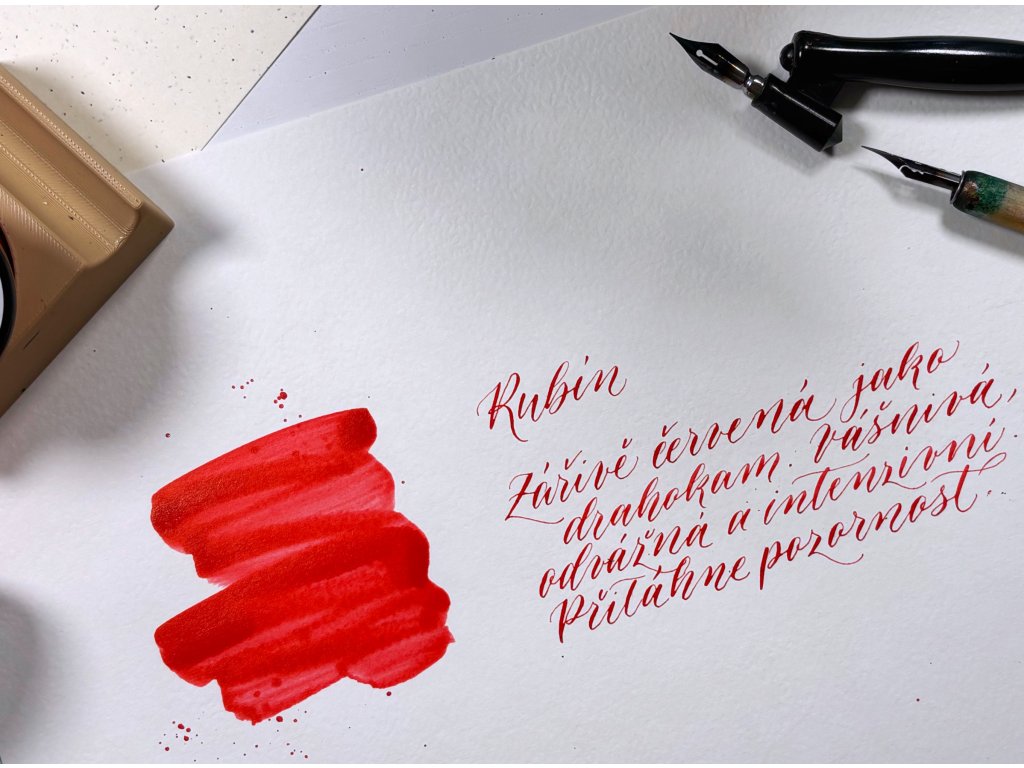 Rubín
Zářivě červená jako
drahokam. Vášnivá,
odvážná a intenzivní.
Přitáhne pozornost.